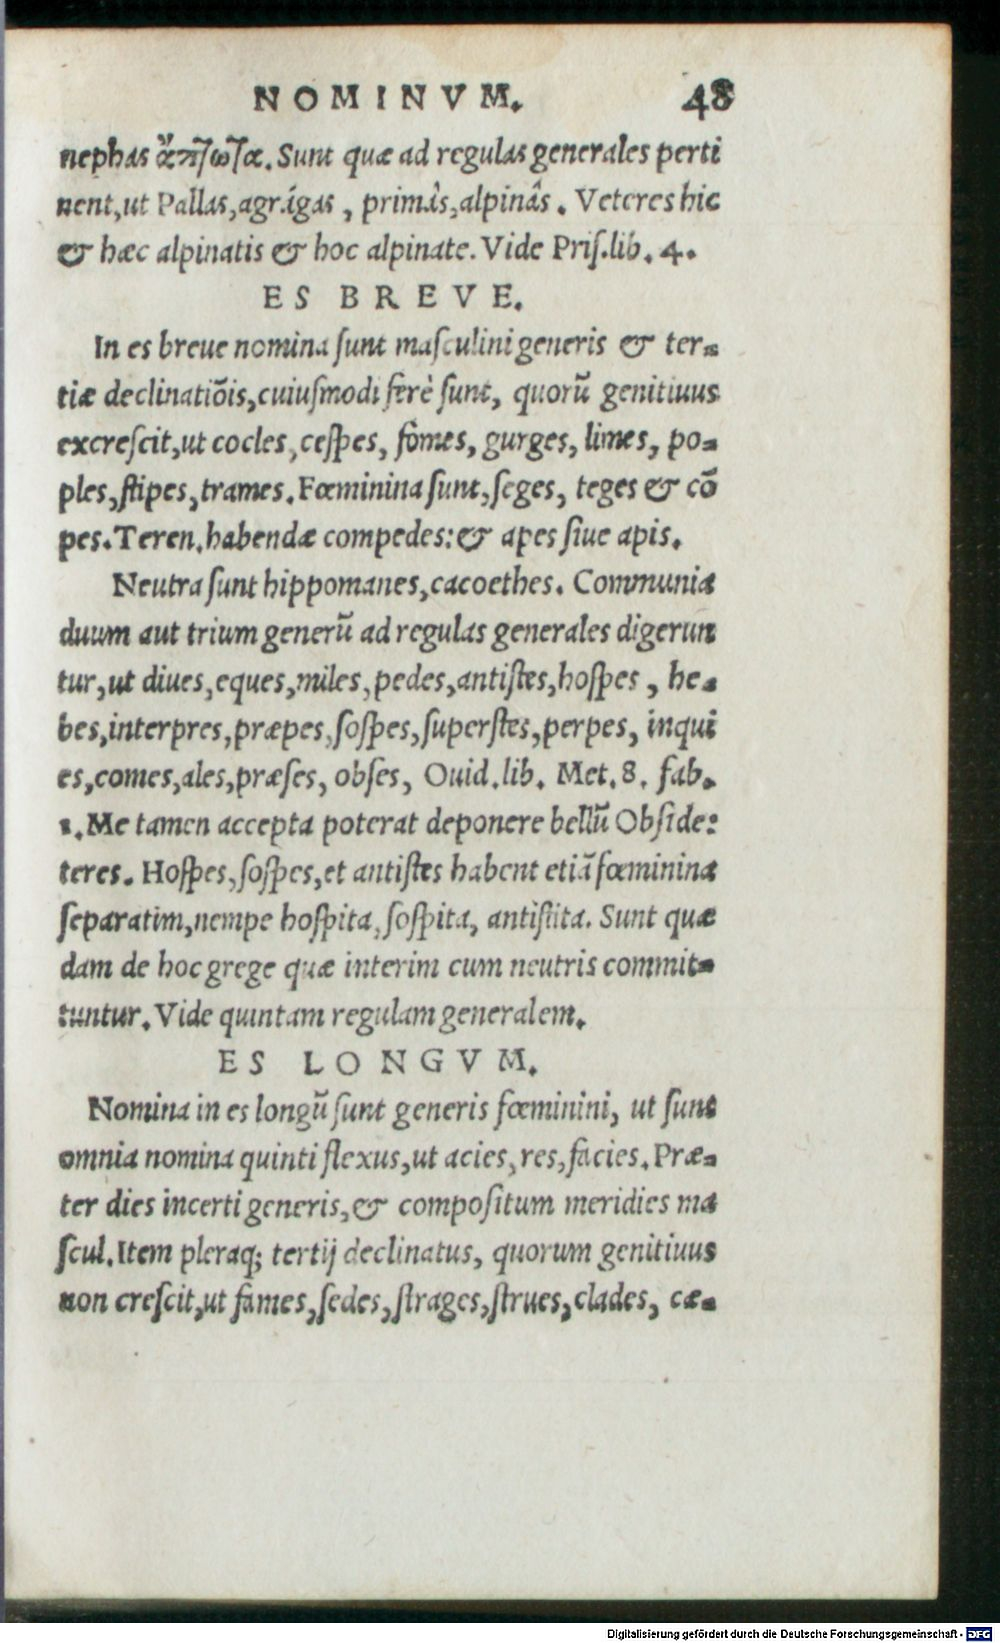 NOMINVM. 48
nephas ἄπτωτα. Sunt quæ ad regulas generales perti
nent,ut Pallas,agrígas, primàs,alpinâs. Veteres hic
& hæc alpinatis & hoc alpinate. Vide Priſ.lib. 4.
ES BREVE.
In es breue nomina ſunt maſculini generis & ter-
tiæ declinatiōis,cuiuſmodi ferè ſunt, quorū genitiuus
excreſcit,ut cocles,ceſpes, fômes, gurges, limes, po-
ples,ſtipes,trames.Fœminina ſunt,ſeges, teges & cō
pes.Teren.habendæ compedes:& apes ſiue apis.
Neutra ſunt hippomanes,cacoethes. Communia
duum aut trium generū ad regulas generales digerun
tur,ut diues,eques,miles,pedes,antiſtes,hoſpes, he-
bes,interpres,præpes,ſoſpes,ſuperſtes,perpes, inqui
es,comes,ales,præſes, obſes, Ouid.lib. Met.8. fab.
1.Me tamen accepta poterat deponere bellū Obſide:
teres. Hoſpes,ſoſpes,et antiſtes habent etiā fœminina
ſeparatim,nempe hoſpita,ſoſpita, antiſtita. Sunt quæ
dam de hoc grege quæ interim cum neutris commit-
tuntur.Vide quintam regulam generalem.
ES LONGVM.
Nomina in es longū ſunt generis fœminini, ut ſunt
omnia nomina quinti flexus,ut acies,res,facies.Præ-
ter dies incerti generis,& compoſitum meridies ma
ſcul.Item pleraq; tertij declinatus, quorum genitiuus
non creſcit,ut fames,ſedes,ſtrages,ſtrues,clades, cæ-
Digitalisierung gefördert durch die Deutsche Forschungsgemeinschaft - DFG